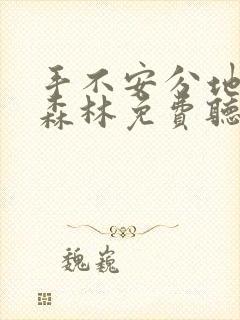 手不安分地
森林免費聽
魏巍